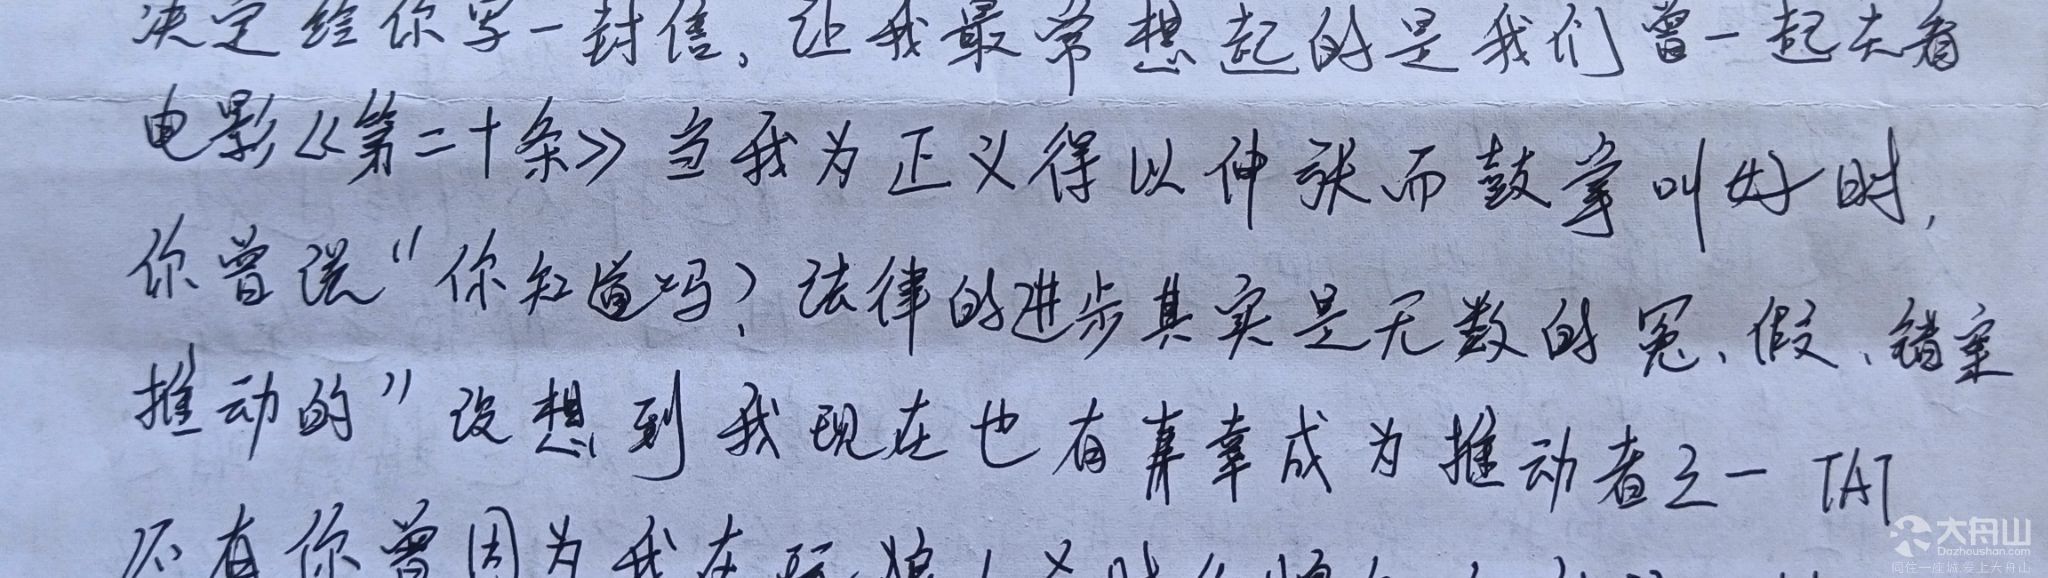 决定给你写一封信,让我最常想起的是我们曾一起去看
电影《第二十条》当我为正义得以伸张而鼓掌叫好时,
你曾说"你知道吗?法律的进步其实是无数的冤、假、错案
推动的"没想到我现在也有幸成为推动者之一 TAT
还有你曾因为我在玩狼人
大舟山
Dazhoushan.com
同住一座城,爱上大舟山